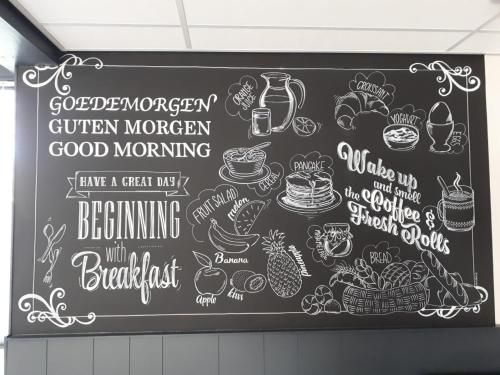 GOEDEMORGEN
GUTEN MORGEN
GOOD MORNING
HAVE A GREAT DAY
BEGINNING
with
Breakfast
ORANGE
JUICE
CEREAL
FRUIT SALAD
melon
Banana
Apple
kiwi
pineapple
PANCAKE
CROISSANT
YOGHURT
EGG
Wake up
and smell
the Coffee &
Fresh Rolls
BREAD